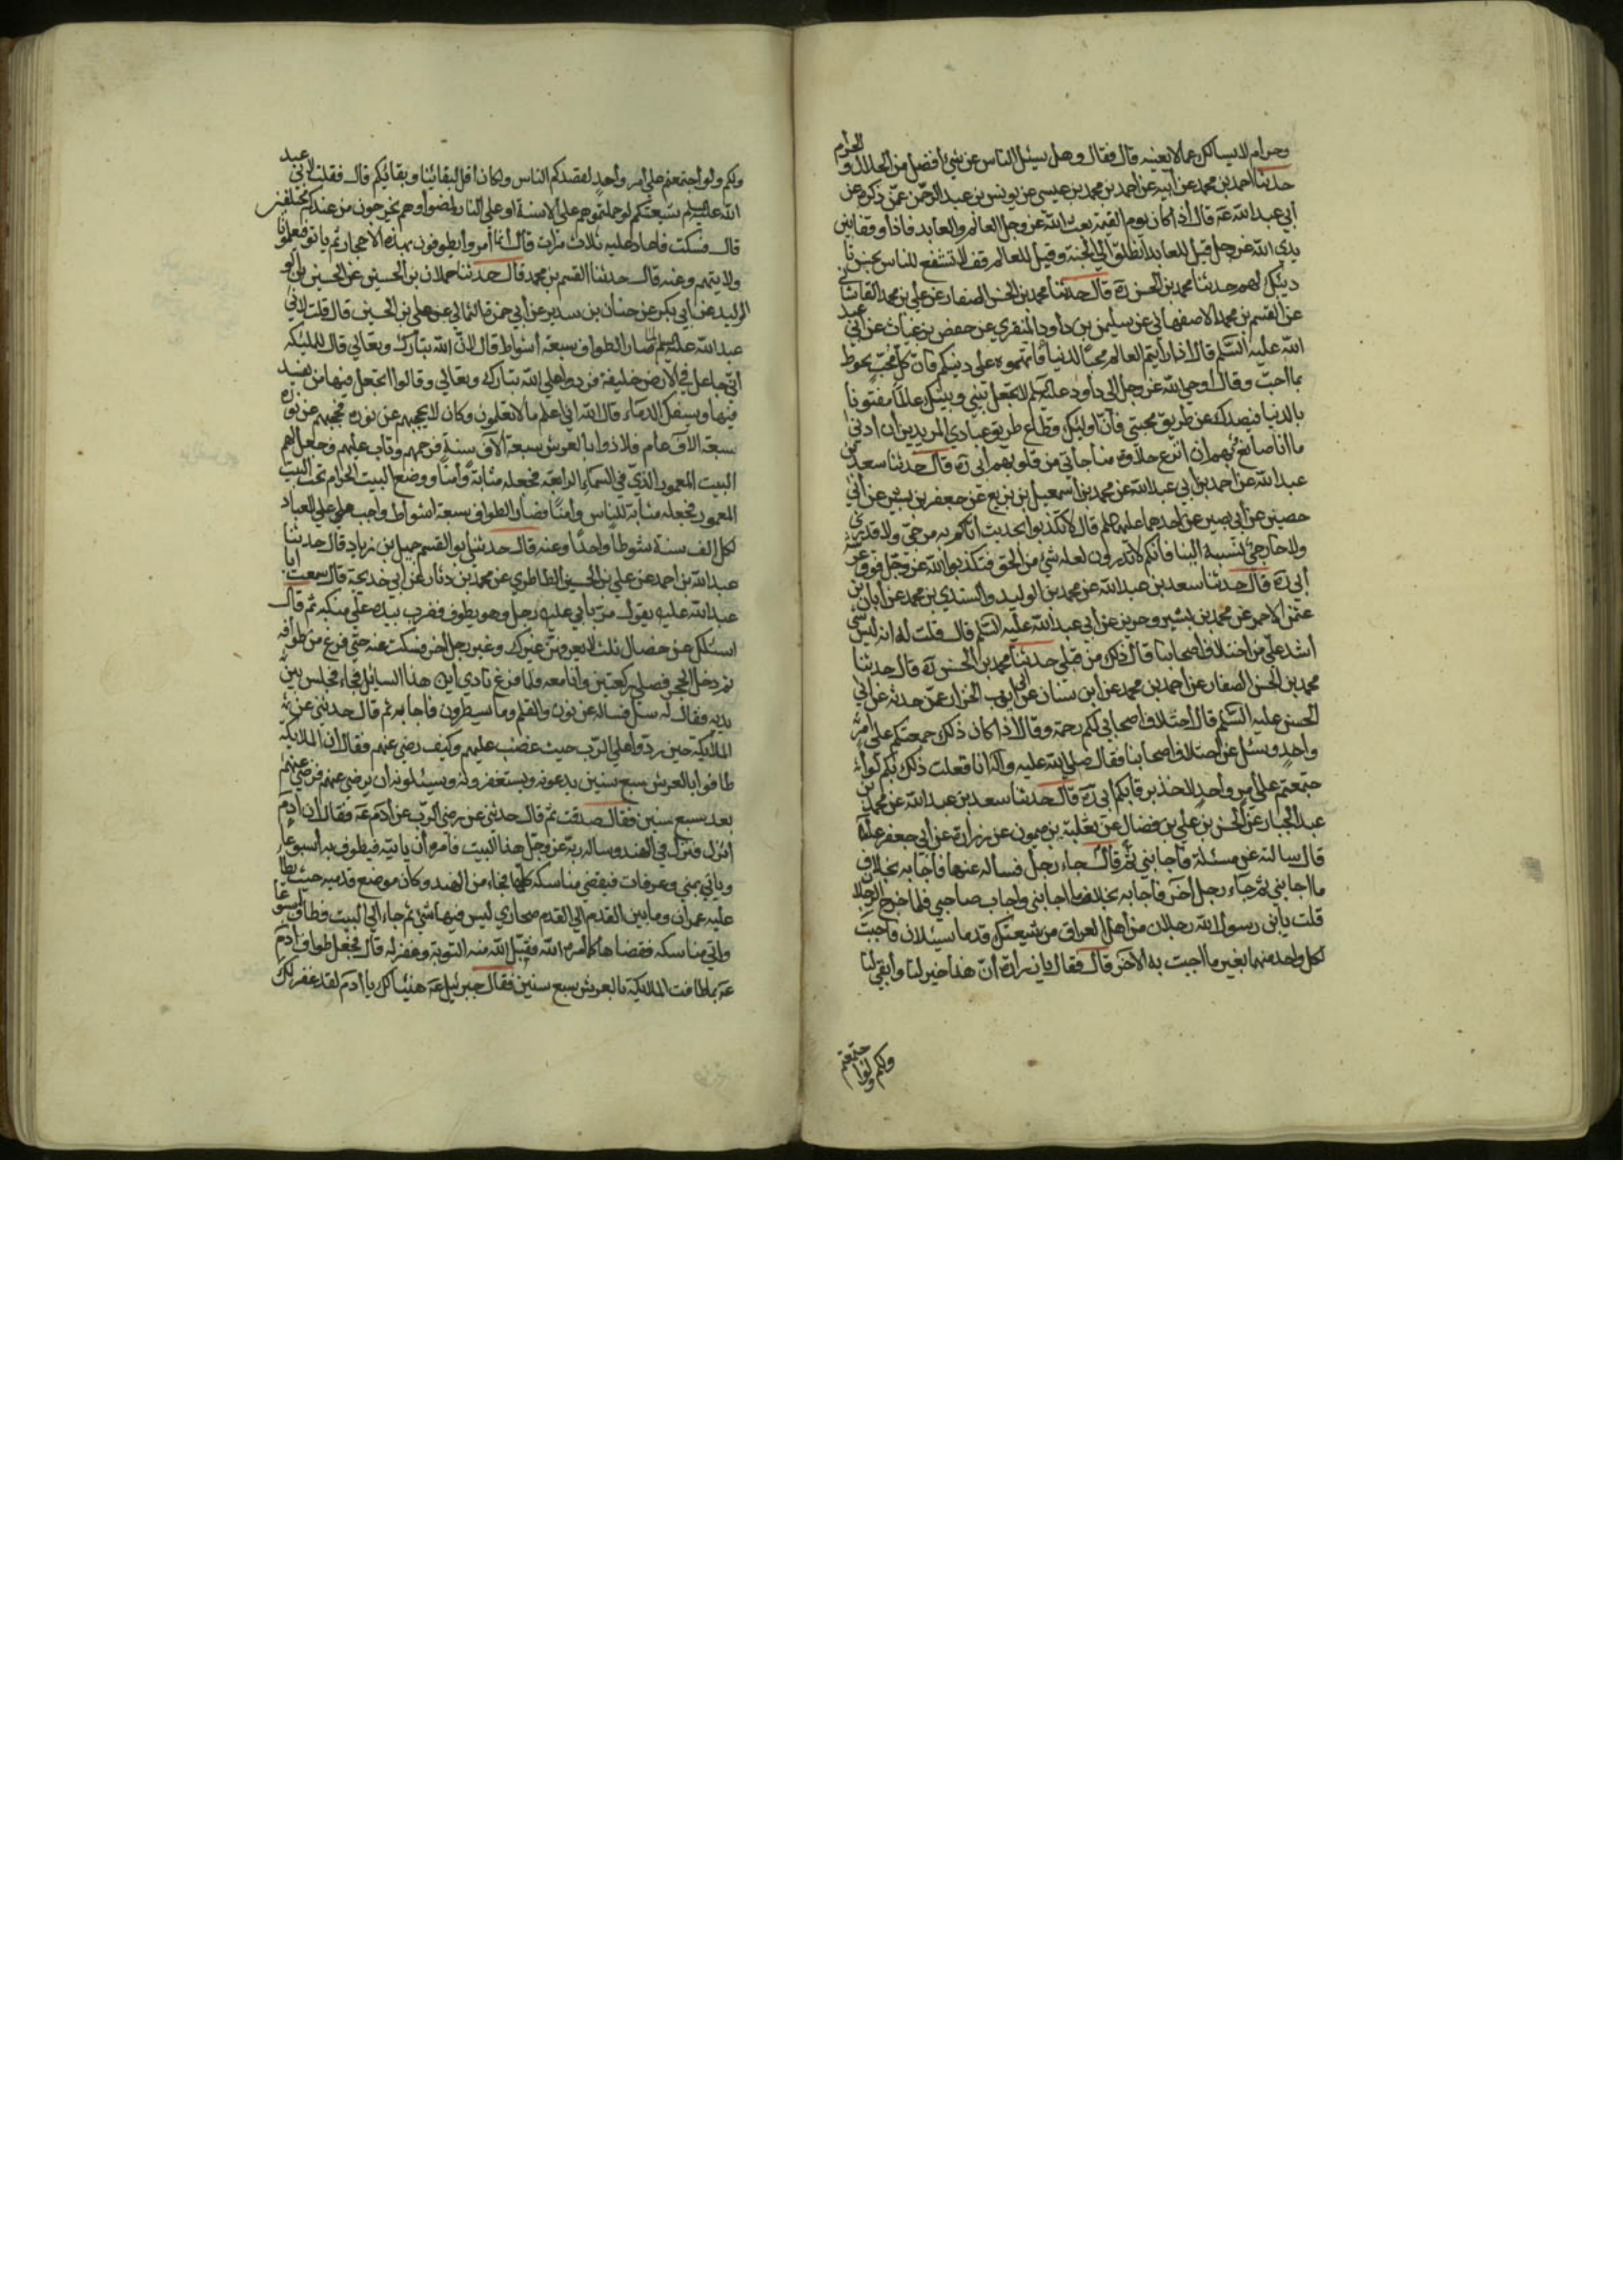 وحرام لايسالك عمالايعنيه قال فقال وهل يسئل الناس عن شيئ افضل من الحلال والحرام
حدثنا احمد بن محمد عن ابيه عن احمد بن محمد بن عيسى عن يونس بن عبد الرحمن عمن ذكره عن
أبي عبد الله عه قال اذا كان يوم القيمة بعث الله عز وجل العالم والعابد فاذا وقفا بين
يدي الله عز وجل قيل للعابد انطلق الي الجنة وقيل للعالم قف لتشفع للناس بحسن تا
ديبك لهم حدثنا محمد بن الحسن ره قال حدثنا محمد بن الحسن الصفار عن علي بن محمد القاشاني
عن القسم بن محمد الاصفهاني عن سليمن بن داود المنقري عن حفص بن غياث عن ابي عبد
الله عليه السلم قال اذا رايتم العالم محبا للدنيا فاتهموه على دينكم فان كل محب يحوط
بما احب وقال اوحى الله عز وجل الى داود عليه السلم لاتجعل بيني وبينك عالما مفتونا
بالدنيا فيصدك عن طريق محبتي فان اولئك قطاع طريق عبادي المريدين ان ادني
ما انا صانع بهم ان انزع حلاوة مناجاتي من قلوبهم ابي ره قال حدثنا سعد بن
عبد الله عن احمد بن ابي عبد الله عن محمد بن اسمعيل بن بزيع عن جعفر بن بشير عن ابي
حصين عن ابي بصير عن احدهما عليهما السلم قال لاتكذبوا بحديث اتاكم به مرجي ولاقدري
ولاخارجي نسبه الينا فانكم لاتدرون لعله شئ من الحق فتكذبوا الله عز وجل فوق عرشه
أبي ره قال حدثنا سعد بن عبد الله عن محمد بن الوليد والسندي بن محمد عن ابان بن
عثمن الاحمر عن محمد بن بشير وحريز عن ابي عبد الله عليه السلم قال قلت له انه ليس شئ
اشد علي من اختلاف اصحابنا قال ذلك من قبلي حدثنا محمد بن الحسن ره قال حدثنا
محمد بن الحسن الصفار عن احمد بن محمد عن ابن سنان عن ابي ايوب الخزاز عمن حدثه عن ابي
الحسن عليه السلم قال اختلاف اصحابي لكم رحمة وقال اذا كان ذلك جمعتكم على امر
واحد وسئل عن اختلاف اصحابنا فقال صلي الله عليه واله انا فعلت ذلك بكم لو ا
جتمعتم على امر واحد لاخذ برقابكم ابي ره قال حدثنا سعد بن عبد الله عن محمد بن
عبد الجبار عن الحسن بن علي بن فضال عن ثعلبة بن ميمون عن زرارة عن ابي جعفر عليه
قال سالته عن مسئلة فاجابني ثم قال جاء رجل فساله عنها فاجابه بخلاف
ما اجابني ثم جاء رجل اخر فاجابه بخلاف ما اجابني واجاب صاحبي فلما خرج الرجلا
قلت يابن رسول الله رجلان من اهل العراق من شيعتك قدما يسئلان فاجبت
لكل واحد منهما بغير ما اجبت به الاخر قال فقال يا زرارة ان هذا خير لنا وابقي لنا
ولكم ولوا جتمعتم
ولكم ولو اجتمعتم على امر واحد لقصدكم الناس ولكان اقل لبقائنا وبقائكم قال فقلت لابي عبد
الله عليه السلم شيعتكم لو حملتموهم على الاسنة او على النار لمضوا وهم يخرجون من عندكم مختلفين
قال فسكت فاعاد عليه ثلاث مرات قال انما امروا يطوفون بهذه الاحجار ثم ياتو فيعلمونا
ولايتهم وعنه قال حدثنا القسم بن محمد قال حدثنا حملان بن الحسين عن الحسين بن
الوليد عن ابي بكر عن حنان بن سدير عن ابي حمزة الثمالي عن علي بن الحسين قال قلت لابي
عبد الله عليه السلم لما صار الطواف سبعة أشواط قال لان الله تبارك وتعالي قال للمليكه
اني جاعل في الارض خليفة فردوا على الله تبارك وتعالي وقالوا اتجعل فيها من يفسد
فيها ويسفك الدماء قال الله اني اعلم ما لاتعلمون وكان لايحجبهم عن نوره فحجبهم عن نوره
سبعة الاف عام فلاذوا بالعرش سبعة الاف سنة فرحمهم وتاب عليهم وجعل لهم
البيت المعمور الذي في السماء الرابعة فجعله مثابة وامنا ووضع البيت الحرام تحت البيت
المعمور فجعله مثابة للناس وامنا فصار الطواف سبعة اشواط واجب على العباد
لكل الف سنة شوطا واحدا وعنه قال حدثنا ابو القسم حميل بن زياد قال حدثنا
عبد الله بن احمد عن علي بن الحسين الطاطري عن محمد بن زياد عن ابي خديجة قال سمعت ابا
عبد الله عليه يقول مر بابي عليه رجل وهو يطوف فضرب بيده على منكبه ثم قال
اسئلك عن خصال ثلث لايعرفهن غيرك وغير رجل اخر فسكت عنه حتي فرغ من طوافه
ثم دخل الحجر فصلي ركعتين وانا معه فلما فرغ نادي اين هذا السائل فجاء فجلس بين
يديه فقال له سل فساله عن نون والقلم وما يسطرون فاجابه ثم قال حدثني عن
الملايكة حين ردوا على الرب حيث غضب عليهم وكيف رضي عنهم فقال ان الملايكة
طافوا بالعرش سبع سنين يدعونه ويستغفرونه ويسئلونه ان يرضي عنهم فرضي عنهم
بعد سبع سنين فقال صدقت ثم قال حدثني عن رضي الرب عن ادم عه فقال ان ادم
انزل فنزل في الهند وسال ربه عز وجل هذا البيت فامره ان ياتيه فيطوف به اسبوعا
وياتي بمني وعرفات فيقضي مناسكه كلها فجاء من الهند وكان موضع قدميه حيث يطا
عليه عمران وما بين القدم الى القدم صحاري ليس فيها شئ ثم جاء الي البيت فطاف اسبوعا
واتي مناسكه فقضاها كما امره الله فقبل الله منه التوبة وغفر له قال فجعل طواف ادم
عه بما طافت الملايكة بالعرش سبع سنين فقال جبرئيل عه هنيئا لك يا ادم لقد غفر لك